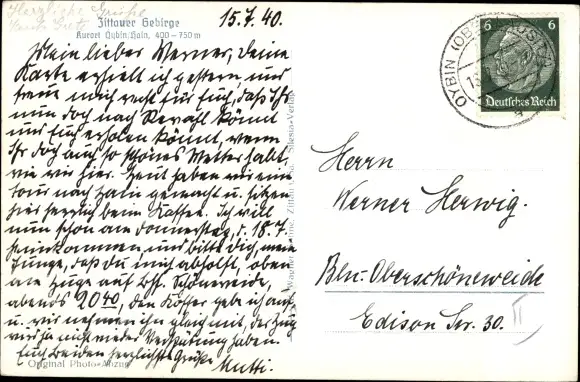 Herzliche Grüße
15.7.40.
Zittauer Gebirge
Kurort Oybin/Hain, 400–750 m
Mein lieber Werner, Deine
Karte erhielt ich gestern und
freue mich recht für Euch, daß Ihr
nun doch nach könnt
und Euch erholen könnt, wenn
Ihr doch auch so schönes Wetter habt,
wie wir hier. Heut haben wir eine
Tour nach Hain gemacht u. sitzen
hier herrlich beim Kaffee. Ich will
nun schon am Donnerstag, d. 18.7.
heimkommen, und bitte Dich, mein
Junge, daß Du mich abholst, oben
am Zuge auf Bhf. Schöneweide,
abends 20 40, den Koffer gebe ich auf
u. wir nehmen ihn gleich mit, der Zug
wird ja nicht wieder Verspätung haben.
Euch beiden herzlichste Grüße
Mutti.
Original Photo-Abzug
OYBIN
6 6
Deutsches Reich
a
Herrn
Werner Herwig.
Bln.-Oberschöneweide
Edison Str. 30. II